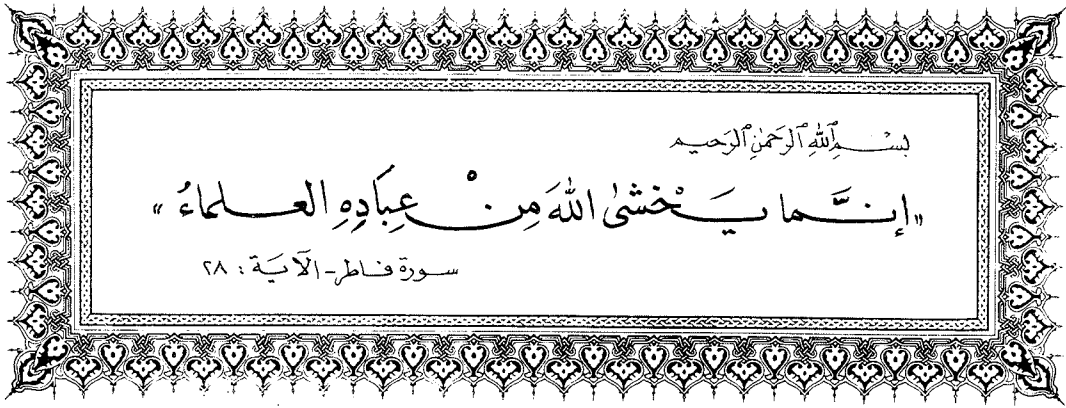 بِسْمِ ٱللَّهِ ٱلرَّحْمَٰنِ ٱلرَّحِيمِ
«إنَّما يَخْشىٰ اللهَ مِنْ عِبَادِهِ العلماءُ»
سورة فاطر - الآية : ٢٨